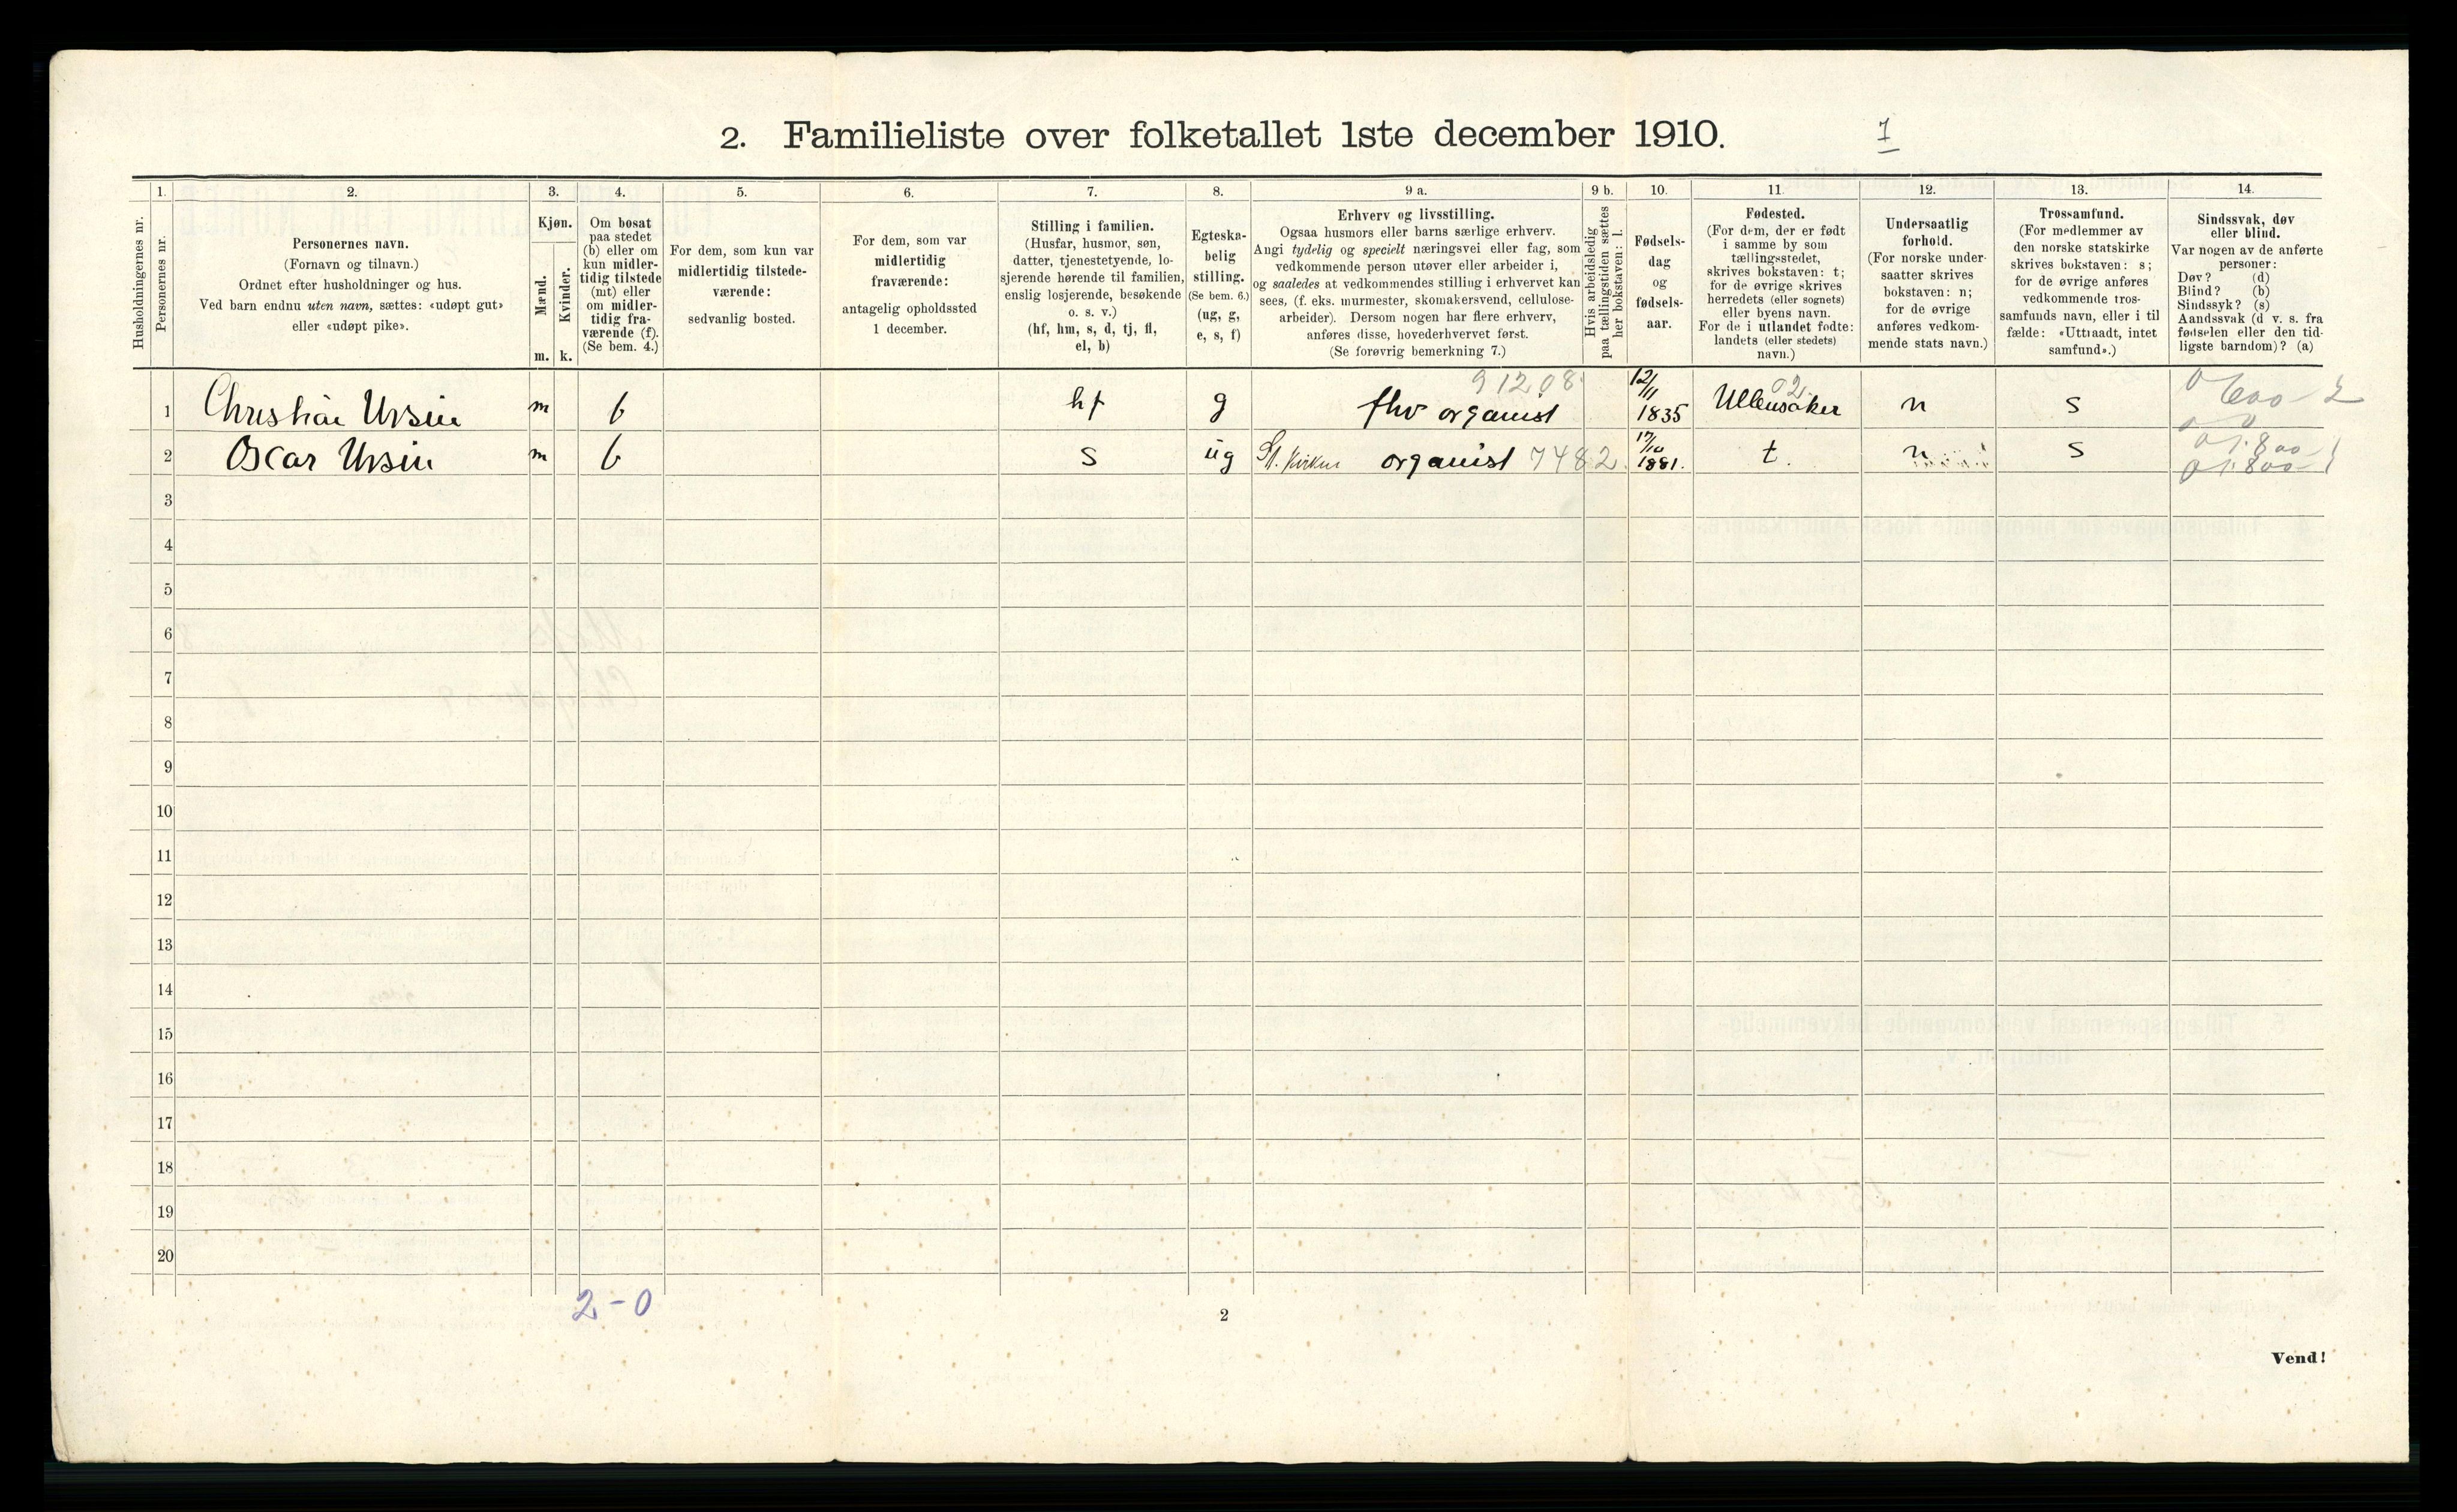 2. Familieliste over folketallet 1ste december 1910. 1
1. 2. 3. 4. 5. 6. 7. 8. 9 a. 9 b. 10. 11. 12. 13. 14.
Husholdningernes nr.
Personernes nr.
Personernes navn.
(Fornavn og tilnavn.)
Ordnet efter husholdninger og hus.
Ved barn endnu uten navn, sættes: «udøpt gut»
eller «udøpt pike».
Kjøn.
Mænd.
Kvinder.
m. k.
Om bosat
paa stedet
(b) eller om
kun midler-
tidig tilstede
(mt) eller
om midler-
tidig fra-
værende (f).
(Se bem. 4.)
For dem, som kun var
midlertidig tilstede-
værende:
sedvanlig bosted.
For dem, som var
midlertidig
fraværende:
antagelig opholdssted
1 december.
Stilling i familien.
(Husfar, husmor, søn,
datter, tjenestetyende, lo-
sjerende hørende til familien,
enslig losjerende, besøkende
o. s. v.)
(hf, hm, s, d, tj, fl,
el, b)
Egteska-
belig
stilling.
(Se bem. 6.)
(ug, g,
e, s, f)
Erhverv og livsstilling.
Ogsaa husmors eller barns særlige erhverv.
Angi tydelig og specielt næringsvei eller fag, som
vedkommende person utøver eller arbeider i,
og saaledes at vedkommendes stilling i erhvervet kan
sees, (f. eks. murmester, skomakersvend, cellulose-
arbeider). Dersom nogen har flere erhverv,
anføres disse, hovederhvervet først.
(Se forøvrig bemerkning 7.)
Hvis arbeidsledig
paa tællingstiden sættes
her bokstaven: l.
Fødsels-
dag
og
fødsels-
aar.
Fødested.
(For dem, der er født
i samme by som
tællingsstedet,
skrives bokstaven: t;
for de øvrige skrives
herredets (eller sognets)
eller byens navn.
For de i utlandet fødte:
landets (eller stedets)
navn.)
Undersaatlig
forhold.
(For norske under-
saatter skrives
bokstaven: n;
for de øvrige
anføres vedkom-
mende stats navn.)
Trossamfund.
(For medlemmer av
den norske statskirke
skrives bokstaven: s;
for de øvrige anføres
vedkommende tros-
samfunds navn, eller i til
fælde: «Uttraadt, intet
samfund».)
Sindssvak, døv
eller blind.
Var nogen av de anførte
personer:
Døv? (d)
Blind? (b)
Sindssyk? (s)
Aandssvak (d v. s. fra
fødselen eller den tid-
ligste barndom)? (a)
91208
1 Christian Ursin m b hf g fhv organist 12/11 1835 Ullensaker 02 n s 0 600 2
0 0
2 Oscar Ursin m b s ug St. Kirken organist 7482 17/10 1881. t. n s 0 1.800
0 1.800
3
4
5
6
7
8
9
10
11
12
13
14
15
16
17
18
19
20
2-0
2
Vend!